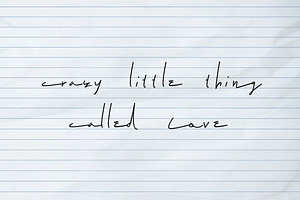 crazy little thing
called Love